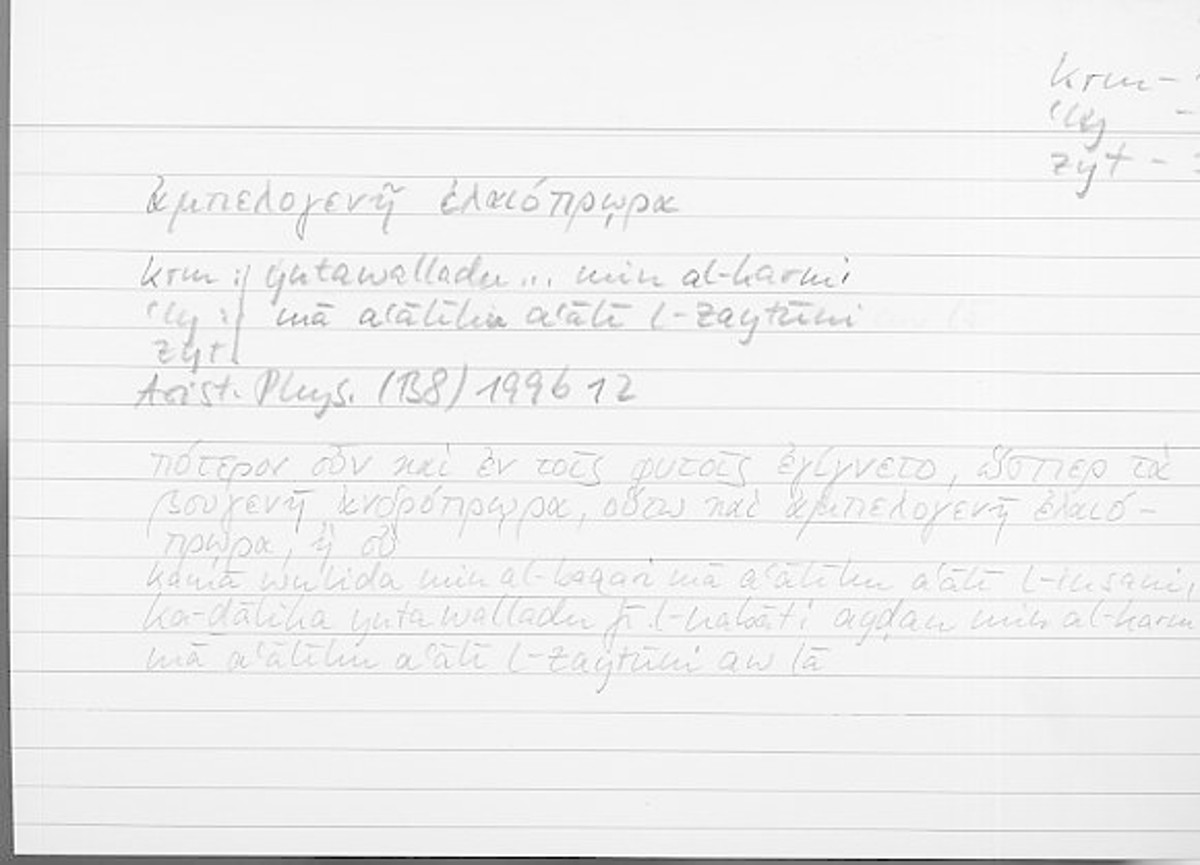 krm -
ʿly -
zyt -
ἀμπελογενῆ ἐλαιόπρῳρα
krm : yutawalladu ... min al-karmi
ʿly : mā aʿālīhi aʿālī l-zaytūni
zyt
Arist. Phys. (B8) 199b 12
πότερον οὖν καὶ ἐν τοῖς φυτοῖς ἐγίγνετο, ὥσπερ τὰ
βουγενῆ ἀνδρόπρῳρα, οὕτω καὶ ἀμπελογενῆ ἐλαιό-
πρῳρα, ἢ οὔ
kamā wulida min al-baqari mā aʿālīhi aʿālī l-insāni,
ka-ḏālika yutawalladu fī l-nabāti ayḍan min al-karmi
mā aʿālīhi aʿālī l-zaytūni aw lā